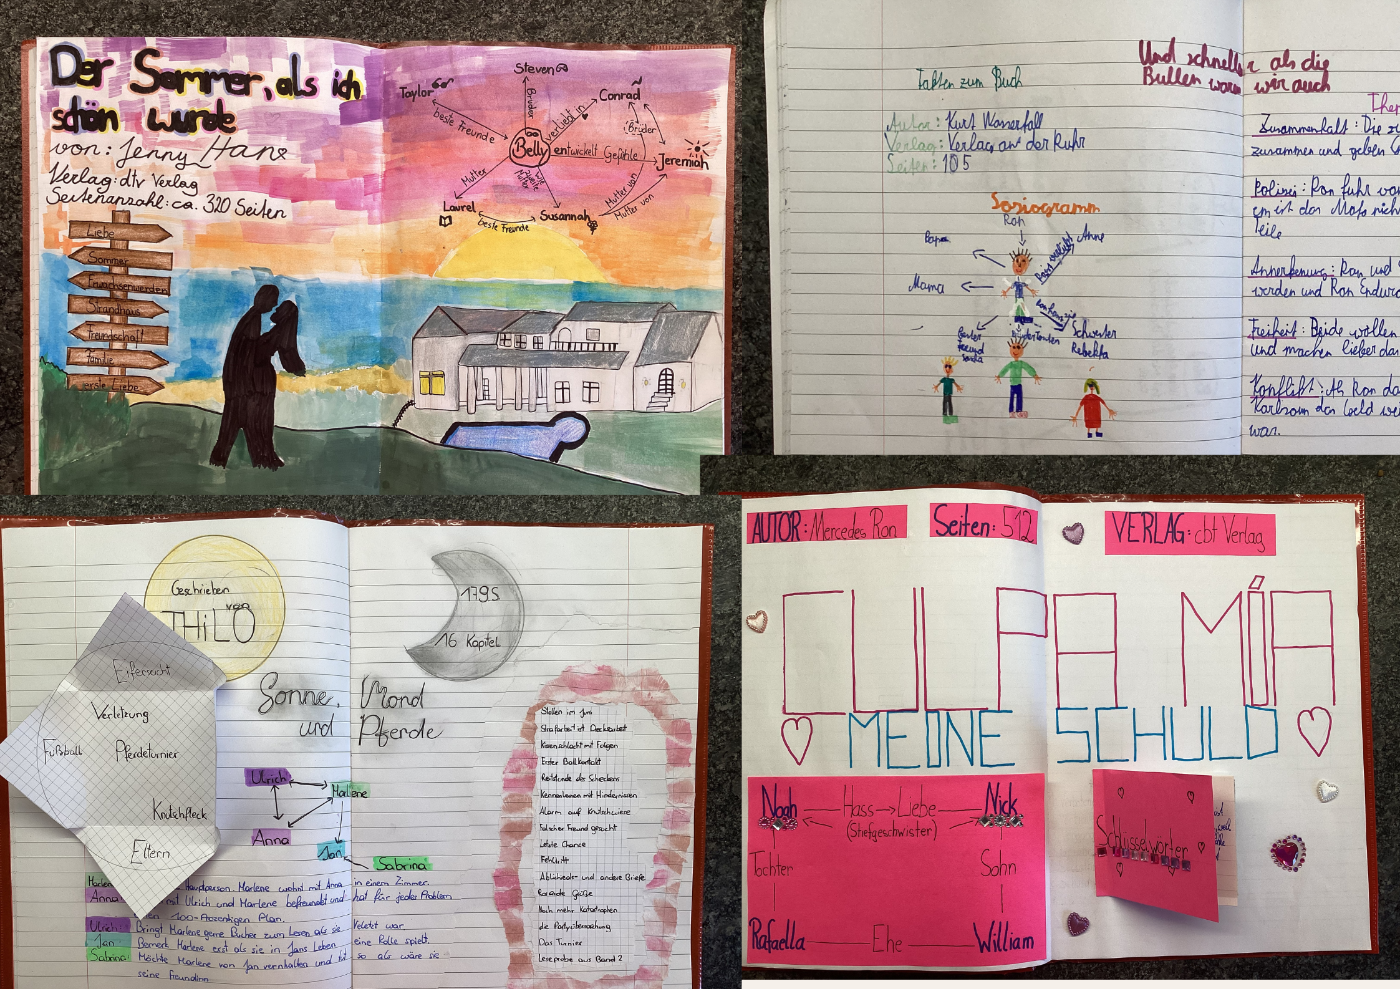 Der Sommer, als ich
schön wurde
von: Jenny Han
Verlag: dtv Verlag
Seitenanzahl: ca. 320 Seiten
Liebe
Sommer
Erwachsenwerden
Strandhaus
Freundschaft
Familie
erste Liebe
Steven
Taylor
Conrad
Bruder
beste Freunde
verliebt in
Brüder
Belly
entwickelt Gefühle
Jeremiah
Mutter
Mutter von
Mutter von
Laurel
beste Freunde
Susannah
Und schneller als die
Bullen waren wir auch
Fakten zum Buch
Autor: Kurt Wasserfall
Verlag: Verlag an der Ruhr
Seiten: 105
Soziogramm
Ron
Papa
Anne
Mama
bester
freund
Schwester
Rebekka
Zusammenhalt: Die
zusammen und geben
Polizei: Ron fuhr
Anerkennung: Ron und
werden und Ron
Freiheit: Beide wollen
und machen lieber
Konflikt: Als Ron
Karlson das Geld
war.
Geschrieben
von
THiLO
179S
16 Kapitel
Sonne, Mond
und Pferde
Eifersucht
Verletzung
Fußball
Pferdeturnier
Knutschfleck
Eltern
Ulrich
Marlene
Anna
Jan
Sabrina
Hauptperson. Marlene wohnt mit Anna in einem Zimmer.
Anna
mit Ulrich und Marlene befreundet und hat für jeder Problem
100-Prozentigen Plan.
Ulrich Bringt Marlene gerne Bücher zum Lesen als sie verletzt war
Jan Bemerk Marlene erst als sie in Jans Leben eine Rolle spielt.
Sabrina Möchte Marlene von Jan fernhalten und tut so als wäre sie
seine Freundinn
Strafarbeit ist Dreckarbeit
Kissenschlacht mit Folgen
Erster Ballkontakt
Kennenlernen mit Hindernissen
Alarm auf Knutschwiese
Falscher Freund gesucht
Letzte Chance
Fehltritt
Abschieds- und andere Briefe
Rasende Grüße
Noch mehr Katastrophen
die Partyüberraschung
Das Turnier
Leseprobe aus Band 2
AUTOR: Mercedes Ron
Seiten: 512
VERLAG: cbt Verlag
CULPA MÍA
MEINE SCHULD
Noah
Hass → Liebe
(Stiefgeschwister)
Nick
Tochter
Sohn
Rafaella
Ehe
William
Schlüsselwörter